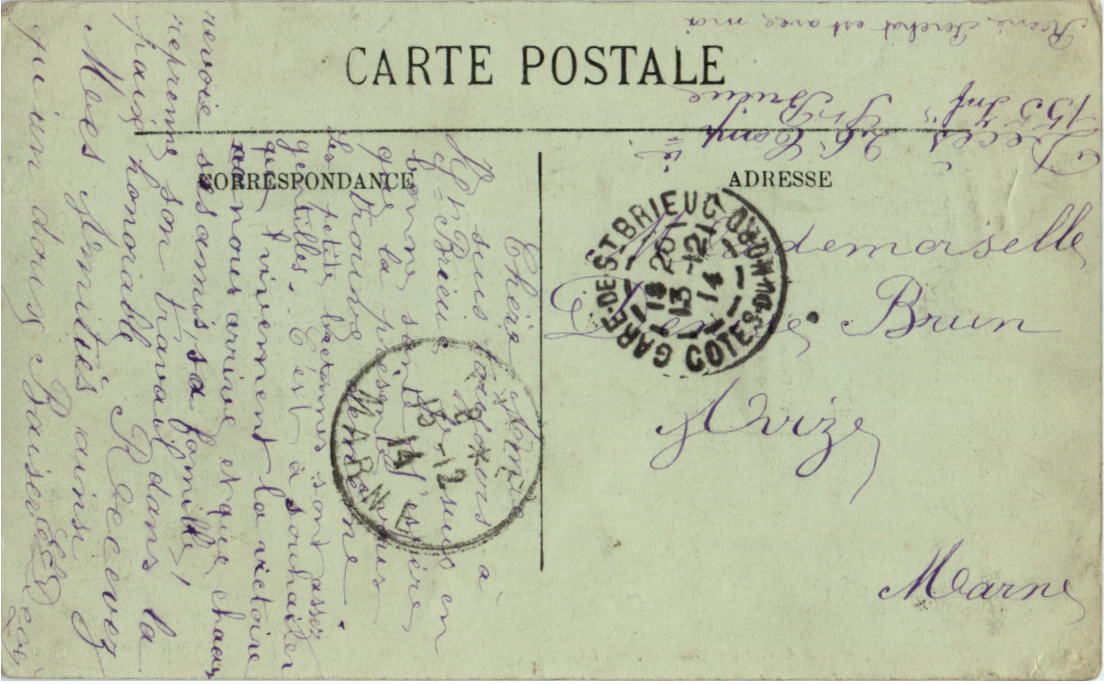 CARTE POSTALE
CORRESPONDANCE
ADRESSE
Chère Amie
Je suis toujours à
St Brieuc, Je suis en
bonne santé. J'espère
que la présente vous
trouve de même
Les petites bretonnes sont assez
gentilles. C'est à souhaiter
que vivement la victoire
nous arrive et que chacun
revoie ses amis, sa famille,
reprenne son travail dans la
paix honorable. Recevez
Mes Amitiés ainsi
qu'un doux Baiser
Mademoiselle
Brun
Avize
Marne
155 Inf
26 Comp
St Brieuc
est avec moi
GARE-DE-ST BRIEUC
COTES-DU-NORD
18 20
13 -12
14
8
15 -12
14
MARNE